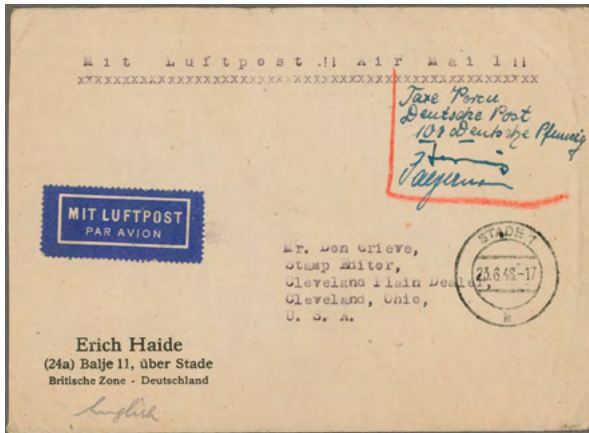 Mit Luftpost !! Air Mail !!
xxxxxxxxxxxxxxxxxxxxxxxxxxxxxxxxxxxxxxxxxxxxxxxx
Taxe Percu
Deutsche Post
108 Deutsche Pfennig
MIT LUFTPOST
PAR AVION
STADE 1
23.6.48.-17
Mr. Don Grieve,
Stamp Editor,
Cleveland Plain Dealer,
Cleveland, Ohio,
U. S. A.
Erich Haide
(24a) Balje 11, über Stade
Britische Zone - Deutschland
English